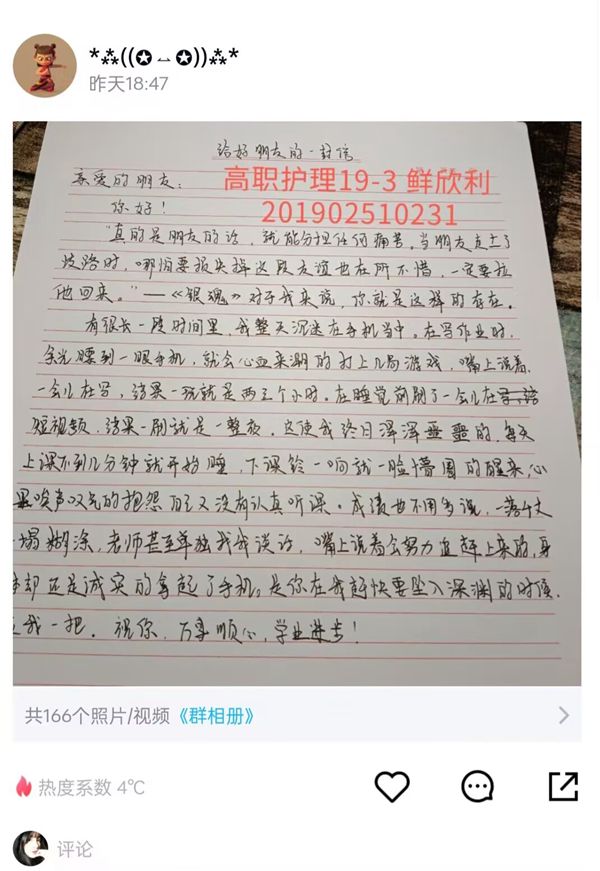 *⁂((✪⌣✪))⁂*
昨天18:47
给好朋友的一封信
亲爱的朋友：
高职护理19-3 鲜欣利
你好！
201902510231
“真的是朋友的话，就能分担任何痛苦。当朋友走上了
歧路时，哪怕要损失掉这段友谊也在所不惜，一定要拉
他回来。”——《银魂》对于我来说，你就是这样的存在。
有很长一段时间里，我整天沉迷在手机当中。在写作业时，
余光瞟到一眼手机，就会心血来潮的打上几局游戏，嘴上说着
一会儿在写，结果一玩就是两三个小时。在睡觉前刷了一会儿在
短视频，结果一刷就是一整夜。这使我终日浑浑噩噩的，每天
上课不到几分钟就开始睡，下课铃一响就一脸懵圈的醒来，心
里唉声叹气的抱怨自己又没有认真听课。成绩也不用多说，一落千丈
一塌糊涂，老师甚至单独找我谈话，嘴上说着会努力追赶上来的，身
体却还是诚实的拿起了手机。是你在我赶快要坠入深渊的时候，
我一把。祝你，万事顺心，学业进步！
共166个照片/视频《群相册》
热度系数 4℃
评论